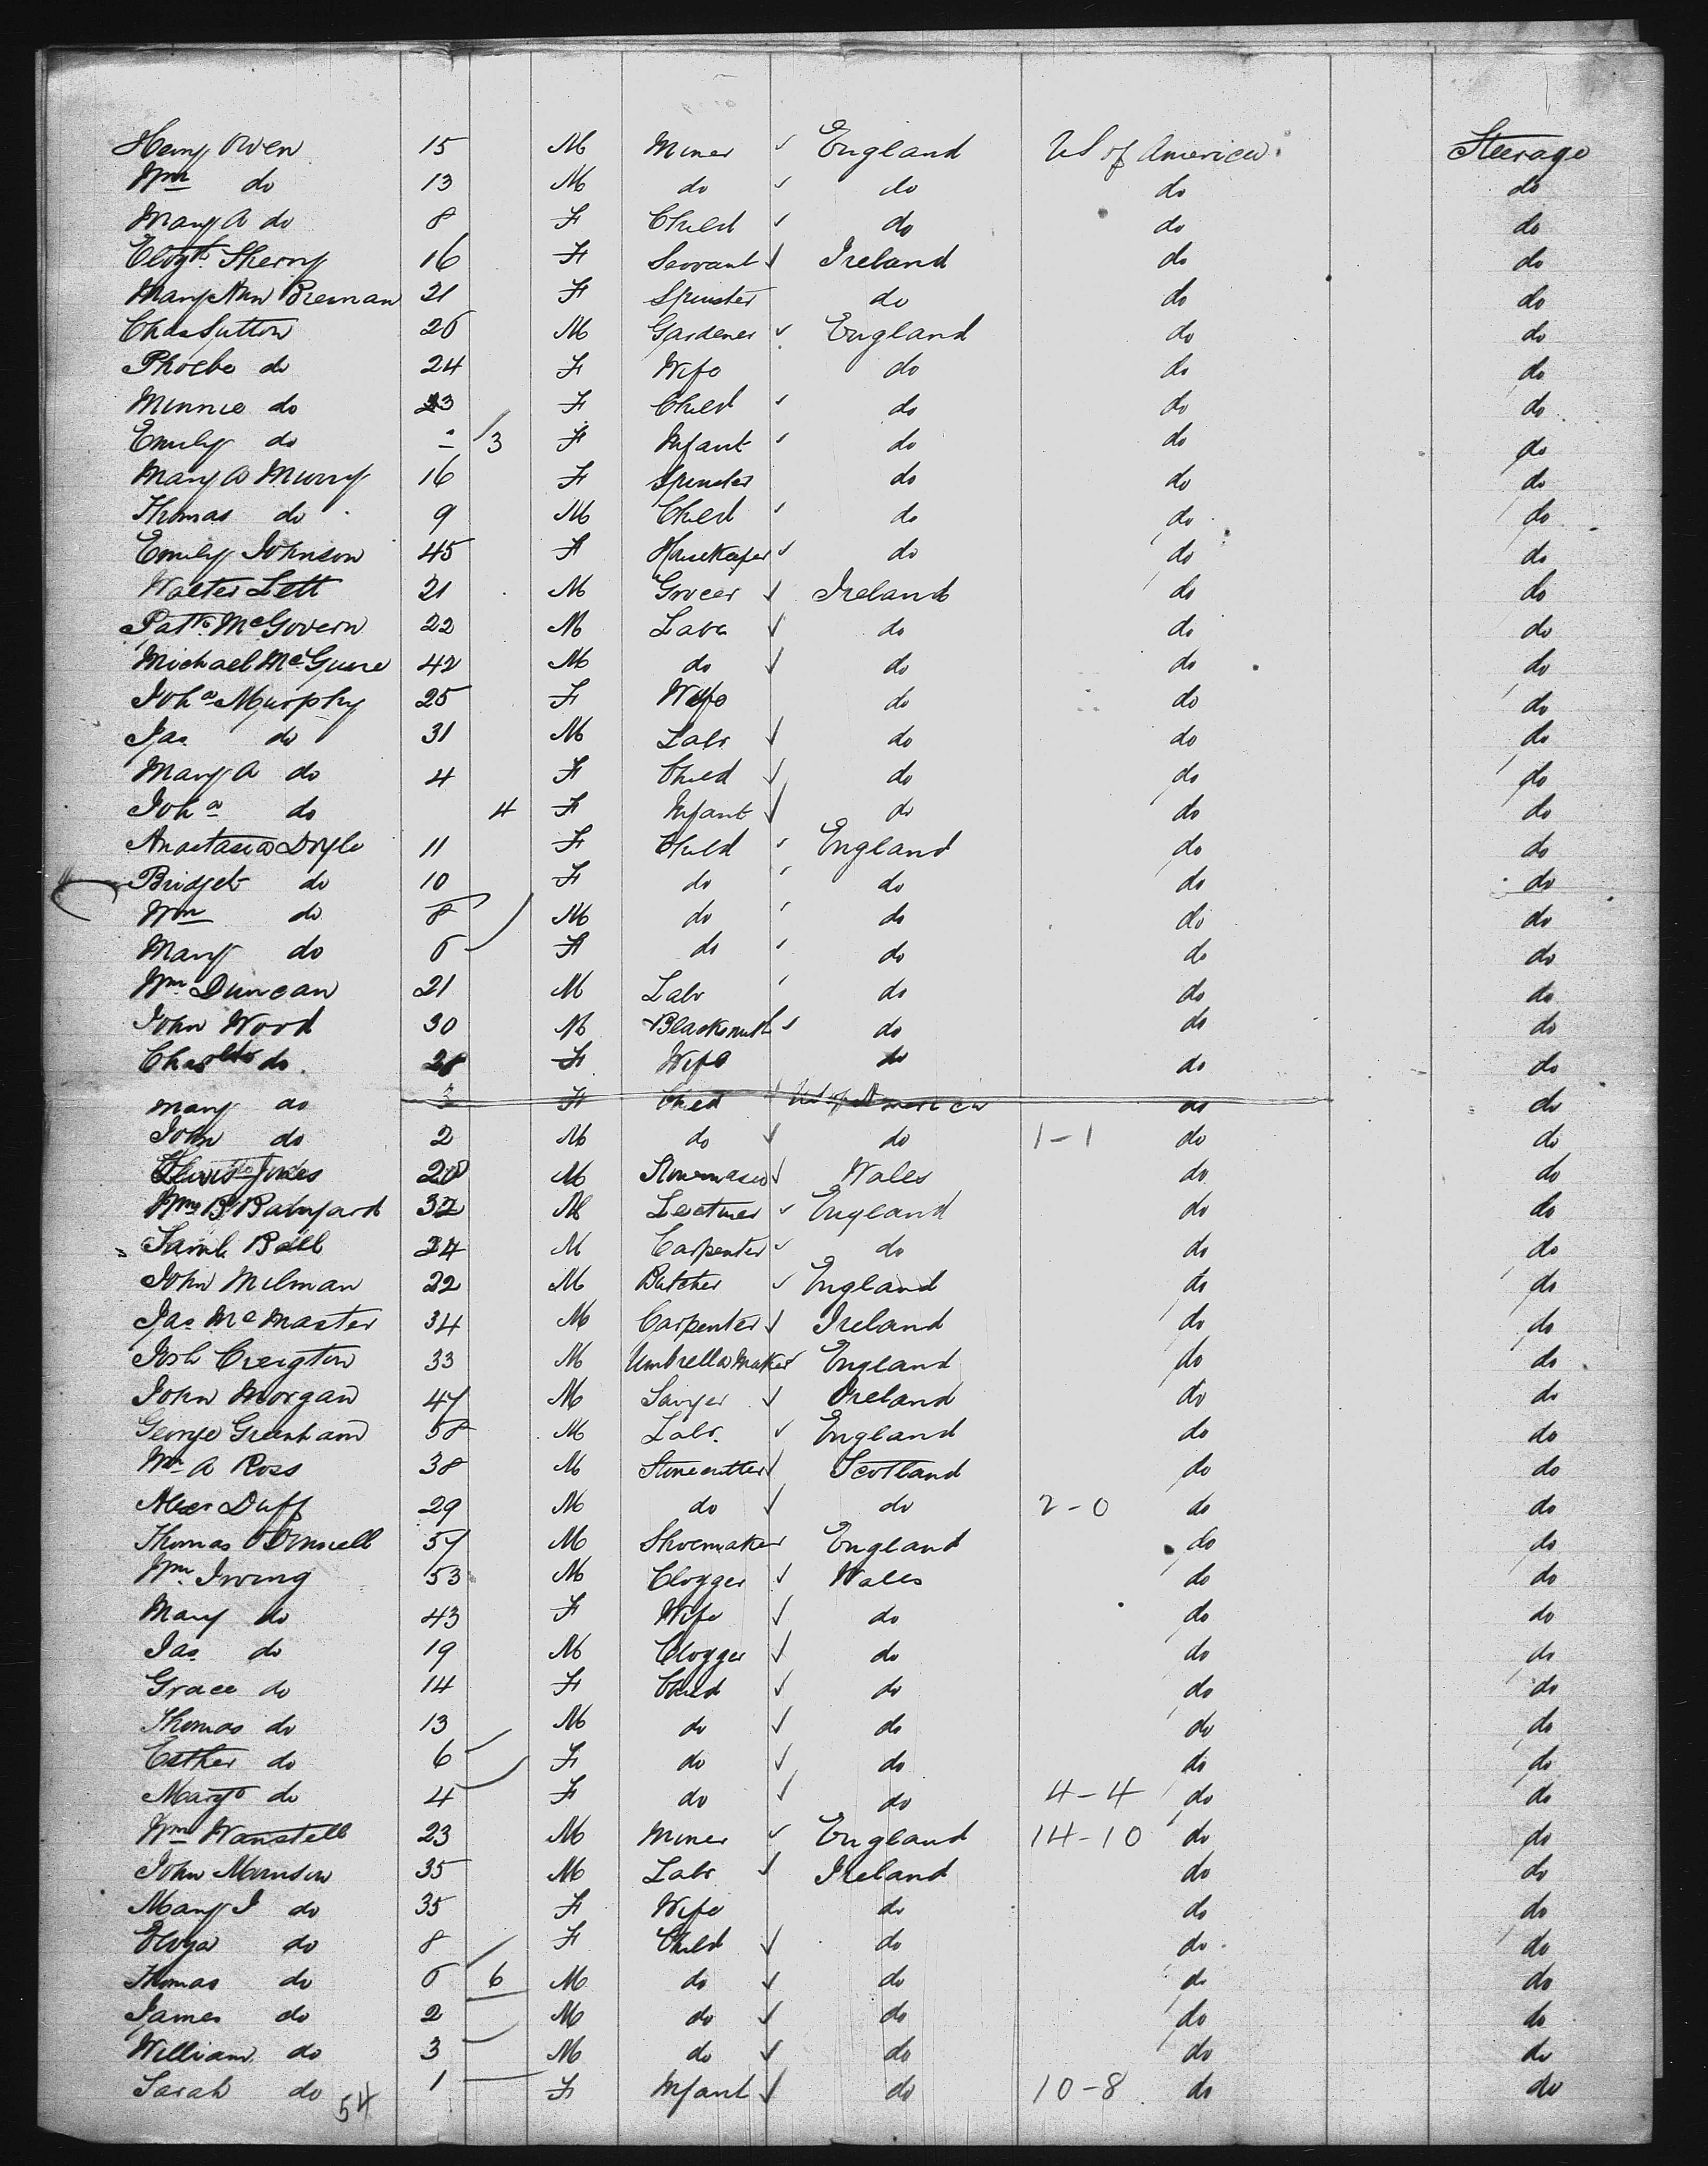 Henry Owen 15 M Miner ✓ England US of America Steerage
Wm do 13 M do ✓ do do do
Mary A do 8 F Child ✓ do do do
Elizth Sherry 16 F Servant ✓ Ireland do do
Mary Ann Brennan 21 F Spinster do do do
Chas Sutton 26 M Gardener ✓ England do do
Phoebe do 24 F Wife do do do
Minnie do 3 F Child ✓ do do do
Emily do - 3 F Infant ✓ do do do
Mary A Murry 16 F Spinster do do do
Thomas do 9 M Child ✓ do do do
Emily Johnson 45 F Housekeeper ✓ do do do
Walter Lett 21 M Grocer ✓ Ireland do do
Patk McGovern 22 M Labr ✓ do do do
Michael McGuire 42 M do ✓ do do do
Joha Murphy 25 F Wife do do do
Jas do 31 M Labr ✓ do do do
Mary A do 4 F Child ✓ do do do
Joha do 4 F Infant ✓ do do do
Anastasia Doyle 11 F Child ✓ England do do
Bridget do 10 F do ✓ do do do
Wm do 8 M do ✓ do do do
Mary do 6 F do ✓ do do do
Wm Duncan 21 M Labr ✓ do do do
John Wood 30 M Blacksmith ✓ do do do
Charltte do 28 F Wife do do do
Mary do 3 F Child ✓ US of America do do
John do 2 M do ✓ do 1-1 do do
Jones 28 M Stonemason ✓ Wales do do
Wm B 32 M Lecturer ✓ England do do
Saml Bell 24 M Carpenter ✓ do do do
John Milman 22 M Butcher ✓ England do do
Jas McMaster 34 M Carpenter ✓ Ireland do do
Josh Creigton 33 M Umbrella Maker England do do
John Morgan 47 M Sawyer ✓ Ireland do do
George Greenham 58 M Labr. ✓ England do do
Wm A Ross 38 M Stonecutter ✓ Scotland do do
Alexr Duff 29 M do ✓ do 2-0 do do
Thomas O'Donnell 57 M Shoemaker England do do
Wm Irving 53 M Clogger ✓ Wales do do
Mary do 43 F Wife ✓ do do do
Jas do 19 M Clogger ✓ do do do
Grace do 14 F Child ✓ do do do
Thomas do 13 M do ✓ do do do
Esther do 6 F do ✓ do do do
Margt do 4 F do ✓ do 4-4 do do
Wm Wanstell 23 M Miner ✓ England 14-10 do do
John Manson 35 M Labr ✓ Ireland do do
Mary J do 35 F Wife do do do
Eliza do 8 F Child ✓ do do do
Thomas do 6 6 M do ✓ do do do
James do 2 M do ✓ do do do
William do 3 M do ✓ do do do
Sarah do 1 F Infant ✓ do 10-8 do do
54